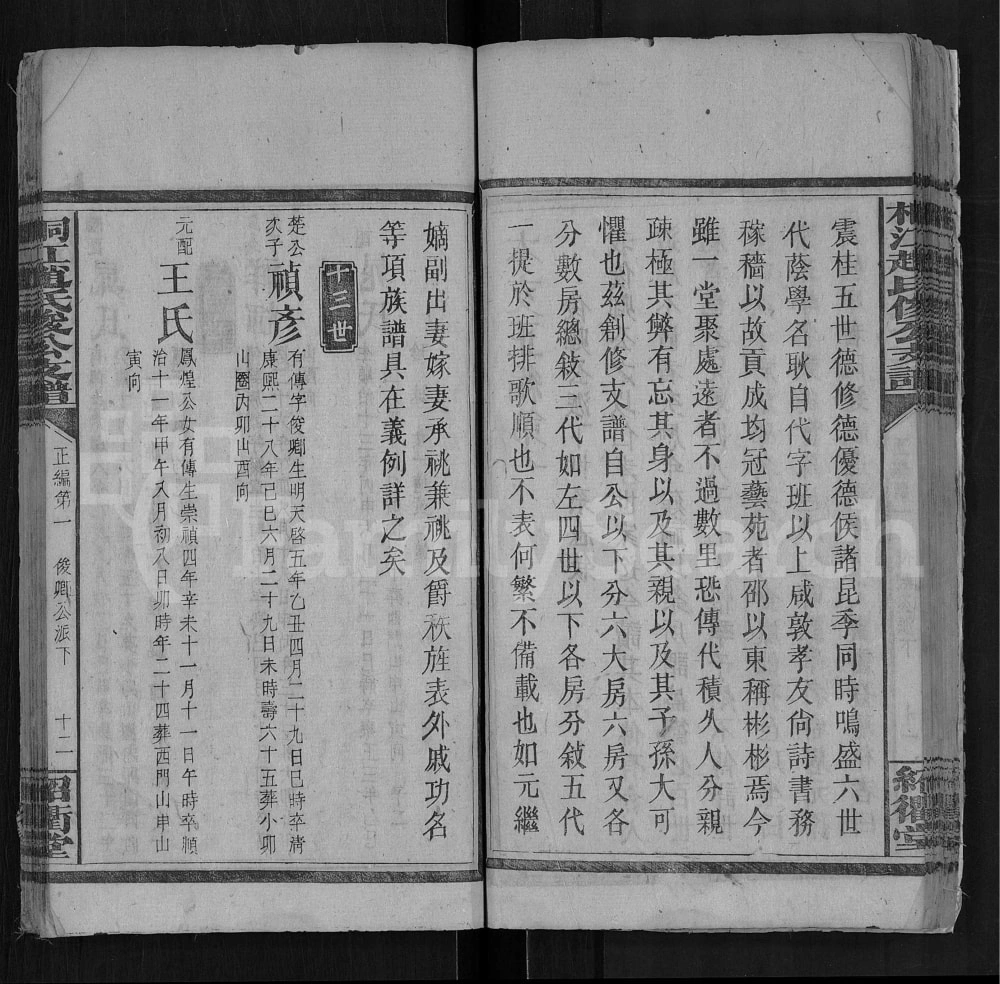 震桂五世德修德優德俟諸昆季同時鳴盛六世
代蔭學名耿自代字班以上咸敦孝友尙詩書務
稼穡以故貢成均冠藝苑者郘以東稱彬彬焉今
雖一堂聚處遠者不過數里恐傳代積久人分親
疎極其弊有忘其身以及其親以及其子孫大可
懼也茲創修支譜自公以下分六大房六房又各
分數房總敍三代如左四世以下各房分敍五代
一提於班排歌順也不表何繁不備載也如元繼
嫡副出妻嫁妻承祧兼祧及爵秩旌表外戚功名
等項族譜具在義例詳之矣
十三世
楚公次子
禎彥
有傳字俊卿生明天啓五年乙丑四月二十九日巳時卒淸
康熙二十八年己巳六月二十九日未時壽六十五葬小卯
山圈內卯山酉向
元配
王氏
鳳煌公女有傳生崇禎四年辛未十一月十一日午時卒順
治十一年甲午八月初八日卯時年二十四葬西門山申山
寅向
桐江趙氏俊公支譜
正編第一
俊卿公派下
十二
紹衢堂
江趙氏俊公支譜